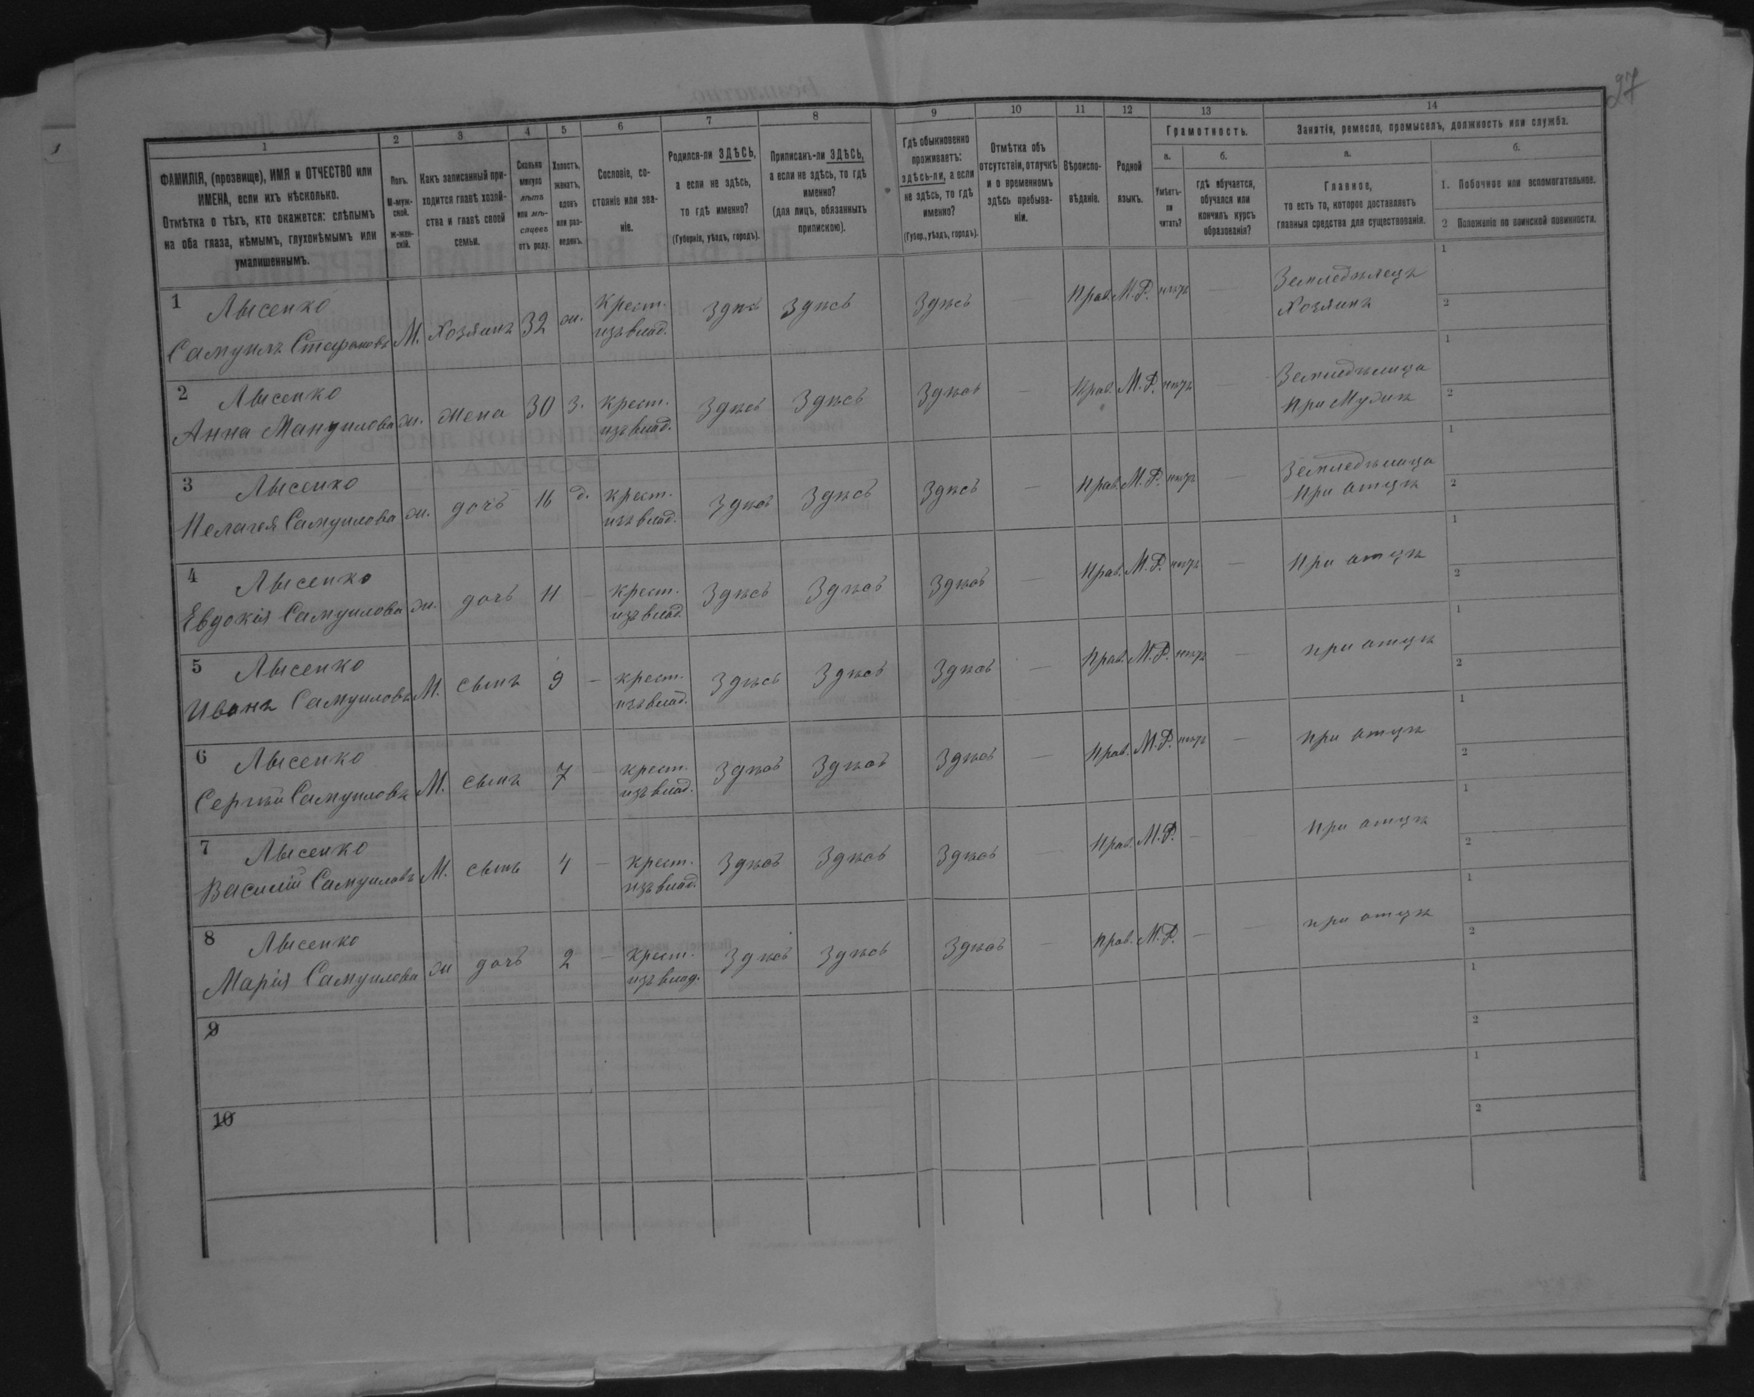 27
1 2 3 4 5 6 7 8 9 10 11 12 13 14
ФАМИЛІЯ, (прозвище), ИМЯ и ОТЧЕСТВО или
ИМЕНА, если ихъ нѣсколько.
Отмѣтка о тѣхъ, кто окажется: слѣпымъ
на оба глаза, нѣмымъ, глухонѣмымъ или
умалишеннымъ.
Полъ.
М-муж-
ской.
ж-жен-
скій.
Какъ записанный при-
ходится главѣ хозяй-
ства и главѣ своей
семьи.
Сколько
минуло
лѣтъ
или мѣ-
сяцевъ
отъ роду.
Холостъ,
женатъ,
вдовъ
или раз-
веденъ.
Сословіе, со-
стояніе или зва-
ніе.
Родился-ли ЗДѢСЬ,
а если не здѣсь,
то гдѣ именно?
(Губернія, уѣздъ, городъ).
Приписанъ-ли ЗДѢСЬ,
а если не здѣсь, то гдѣ
именно?
(для лицъ, обязанныхъ
припискою).
Гдѣ обыкновенно
проживаетъ:
здѣсь-ли, а если
не здѣсь, то гдѣ
именно?
(Губер., уѣздъ, городъ).
Отмѣтка объ
отсутствіи, отлучкѣ
и о временномъ
здѣсь пребыва-
ніи.
Вѣроиспо-
вѣданіе.
Родной
языкъ.
Грамотность.
а.
Умѣетъ-
ли
читать?
б.
гдѣ обучается,
обучался или
кончилъ курсъ
образованія?
Занятія, ремесло, промыселъ, должность или служба.
а.
Главное,
то есть то, которое доставляетъ
главныя средства для существованія.
б.
1. Побочное или вспомогательное.
2 Положеніе по воинской повинности.
1 Лысенко
Самуилъ Стефановъ М. Хозяинъ 32 ж. Крест.
изъ влад. Здѣсь Здѣсь Здѣсь — Прав. М.Р. нѣтъ — Земледѣлецъ
Хозяинъ 1
2
2 Лысенко
Анна Мануилова ж. жена 30 з. крест.
изъ влад. Здѣсь Здѣсь Здѣсь — Прав. М.Р. нѣтъ — Земледѣлица
При Мужѣ 1
2
3 Лысенко
Пелагея Самуилова ж. дочь 16 д. крест.
изъ влад. Здѣсь Здѣсь Здѣсь — Прав. М.Р. нѣтъ — Земледѣлица
При отцѣ 1
2
4 Лысенко
Евдокія Самуилова ж. дочь 11 — крест.
изъ влад. Здѣсь Здѣсь Здѣсь — Прав. М.Р. нѣтъ — При отцѣ 1
2
5 Лысенко
Иванъ Самуиловъ М. сынъ 9 — крест.
изъ влад. Здѣсь Здѣсь Здѣсь — Прав. М.Р. нѣтъ — при отцѣ 1
2
6 Лысенко
Сергѣй Самуиловъ М. сынъ 7 — крест.
изъ влад. Здѣсь Здѣсь Здѣсь — Прав. М.Р. нѣтъ — при отцѣ 1
2
7 Лысенко
Василій Самуиловъ М. сынъ 4 — крест.
изъ влад. Здѣсь Здѣсь Здѣсь — Прав. М.Р. — — при отцѣ 1
2
8 Лысенко
Марія Самуилова ж дочь 2 — крест.
изъ влад. Здѣсь Здѣсь Здѣсь — Прав. М.Р. — — при отцѣ 1
2
9 1
2
10 1
2